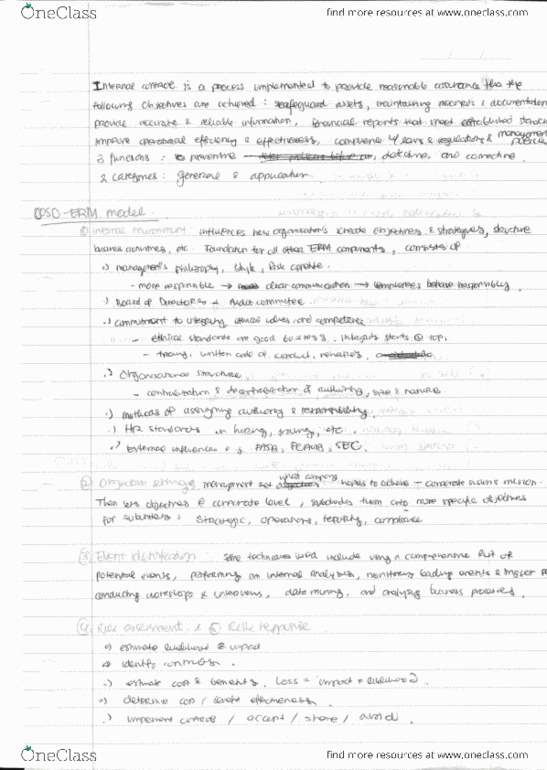 OneClass
find more resources at www.oneclass.com
Internal control is a process implemented to provide reasonable assurance that the
following objectives are achieved : safeguard assets, maintaining records & documentation
provide accurate & reliable information, financial reports that meet established
improve operational efficiency & effectiveness, compliance w/ laws & regulations & management
3 functions : preventive detective, and corrective
2 categories : general & application
COSO-ERM model.
① Internal environment : influences how organisations create objectives & strategies, structure
business activities, etc. Foundation for all other ERM components, consists of
•) management's philosophy, style, risk appetite.
- more responsible → clear communication → employees behave responsibly.
•) Board of Directors + Audit committee.
•) commitment to integrity, ethical values, and competence
- ethical standards are good business. Integrity starts @ top.
- training, written code of conduct,
•) Organisational structure
- centralisation & decentralisation of authority, size & nature
•) methods of assigning authority & responsibility.
•) HR standards in hiring, training, etc.
•) external influences e.g. FASB, PCAOB, SEC.
② Objective setting : management set what company hopes to achieve – corporate vision & mission.
Then sets objectives @ corporate level, subdivides them into more specific objectives
for subunits : strategic, operations, reporting, compliance
③ Event identification : Some techniques used include using a comprehensive list of
potential events, performing an internal analysis, monitoring leading events & trigger
conducting workshops & interviews, data mining, and analysing business processes.
④ Risk assessment & ⑤ Risk response
•) estimate likelihood & impact
•) identify controls.
•) estimate cost & benefits. Loss = impact × likelihood.
•) determine cost / benefit effectiveness.
•) implement control / accept / share / avoid.
OneClass
find more resources at www.oneclass.com